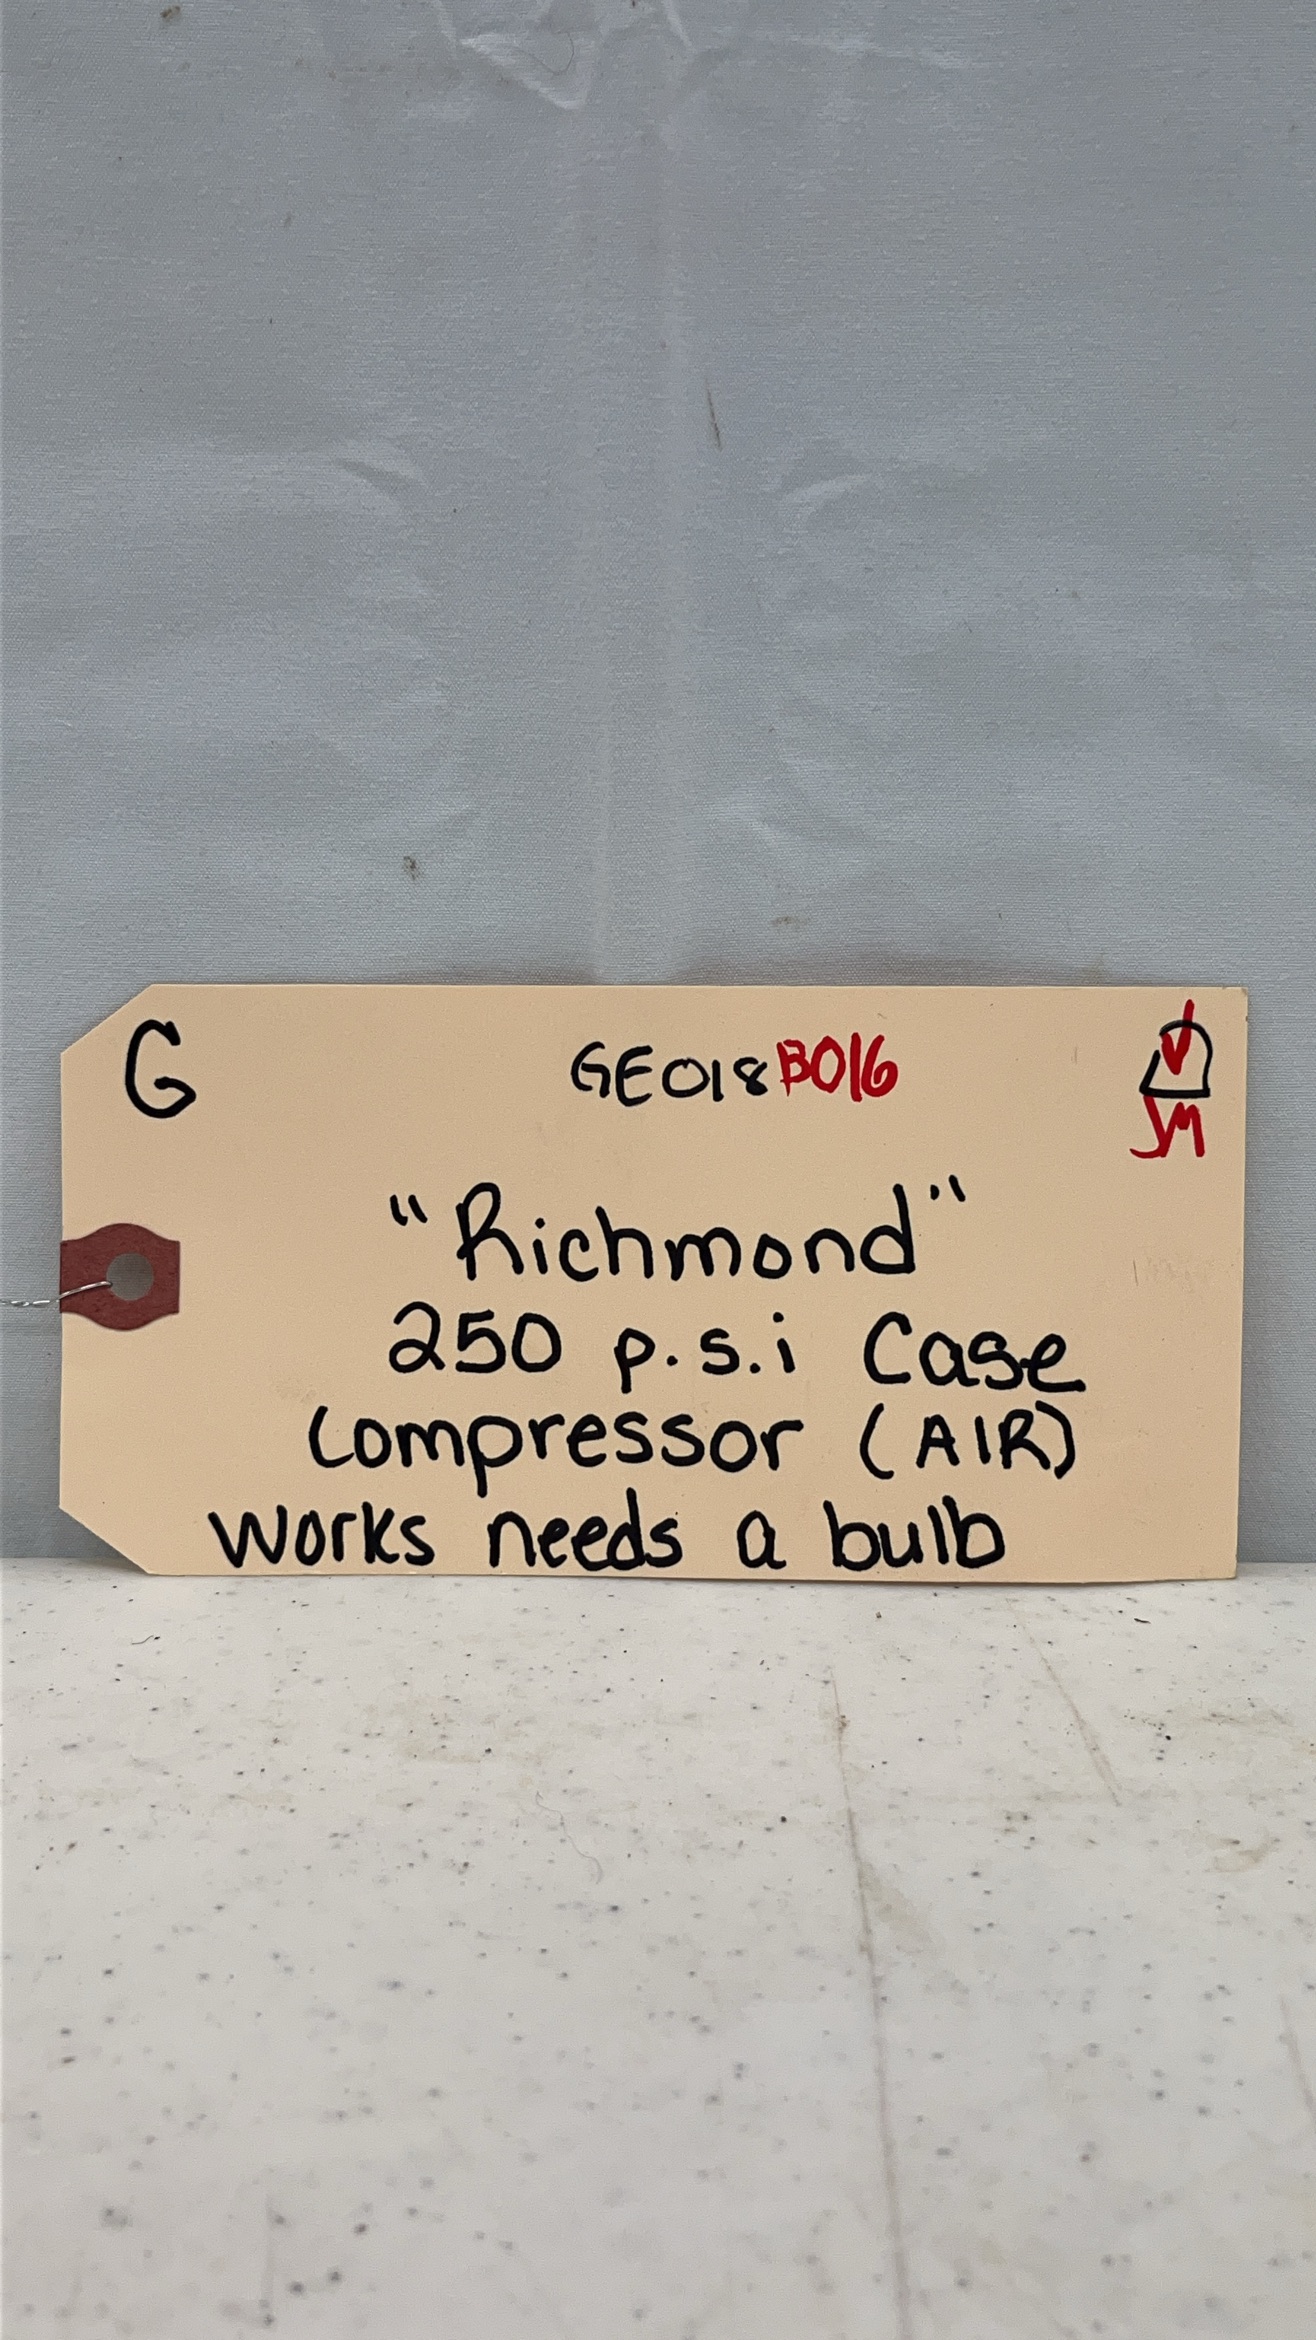 G GE018B016
JM
"Richmond"
250 p.s.i Case
Compressor (AIR)
Works needs a bulb